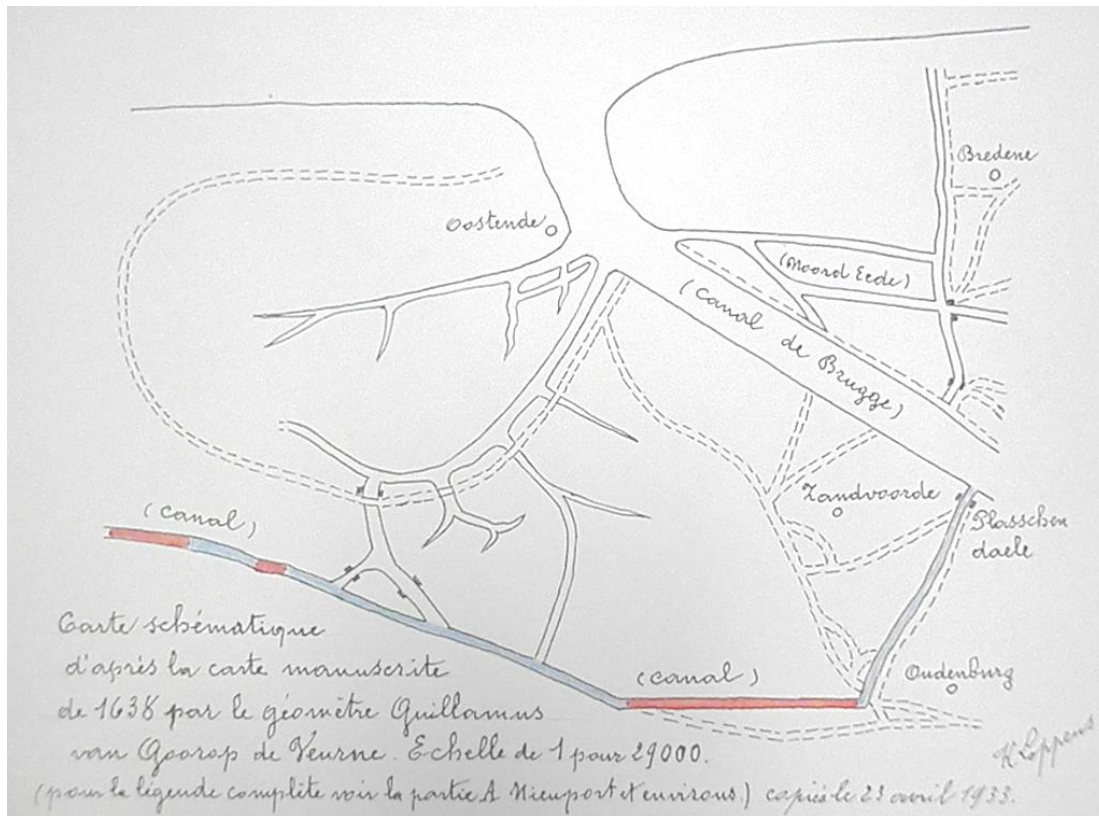 Bredene
Oostende
(Noord Eede)
(Canal de Brugge)
Zandvoorde
Plasschen
daele
(Canal)
Oudenburg
(Canal)
Carte schématique
d'après la carte manuscrite
de 1638 par le géomètre Guillamus
van Goorop de Veurne. Echelle de 1 pour 29000.
(pour la légende complète voir la partie A Nieuport et environs.) copiés le 23 avril 1933.
K Loppens